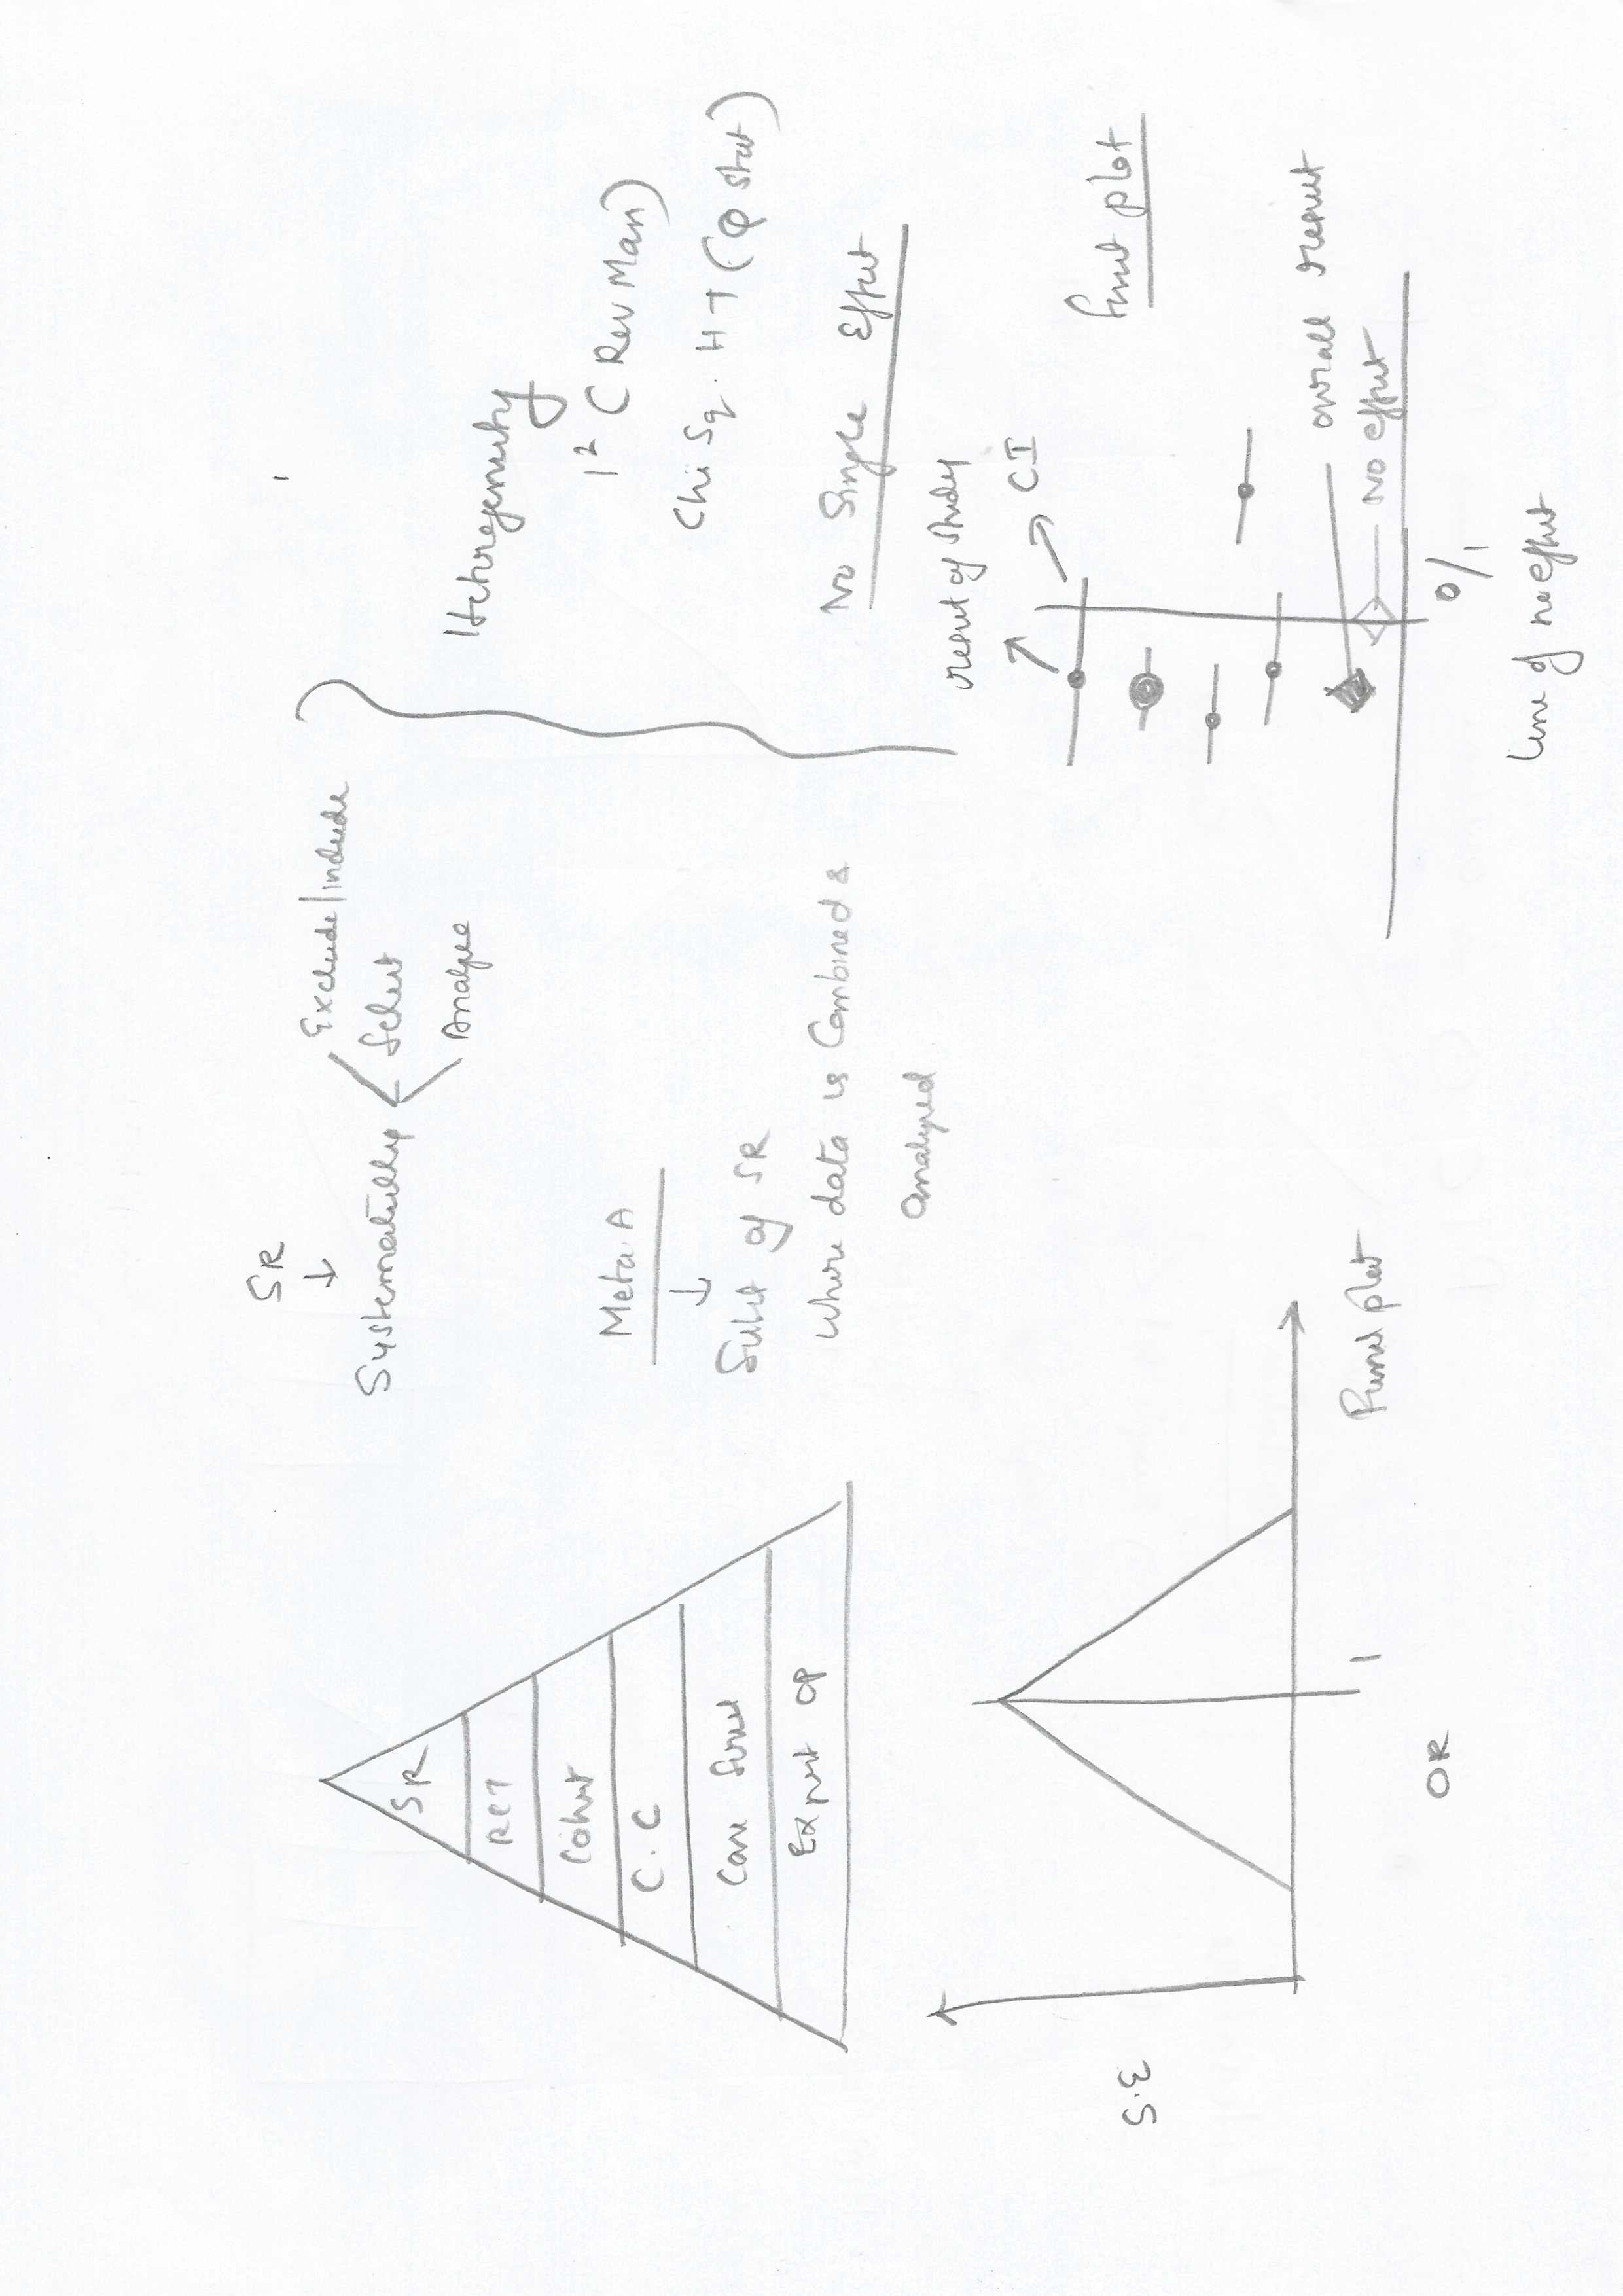 SR
RCT
Cohort
C.C
Case Series
Expert OP
SR
↓
Systematically
Exclude/include
Select
Analyse
Meta A
↓
Subset of SR
where data is Combined &
analysed
Hetrogenuity
I² (Rev Man)
Chi Sq. HT (Q stat)
No Single Effect
S.E
1
OR
Funnel plot
result of study
CI
Forest plot
overall result
No effect
0/1
line of no effect